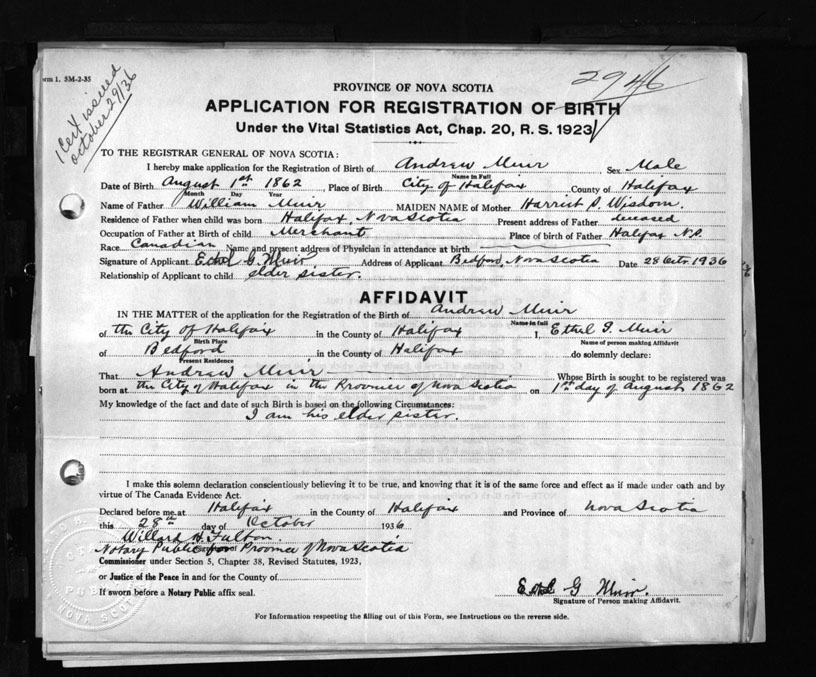 orm 1. 5M-2-35
1 Cert issued
october 29/36
2946
PROVINCE OF NOVA SCOTIA
APPLICATION FOR REGISTRATION OF BIRTH
Under the Vital Statistics Act, Chap. 20, R. S. 1923
TO THE REGISTRAR GENERAL OF NOVA SCOTIA:
I hereby make application for the Registration of Birth of Andrew Muir Sex Male
Name in Full
Date of Birth August 1st 1862, Place of Birth City of Halifax County of Halifax
Month Day Year
Name of Father William Muir MAIDEN NAME of Mother Harriet P. Wisdom.
Residence of Father when child was born Halifax, Nova Scotia Present address of Father deceased
Occupation of Father at Birth of child Merchant Place of birth of Father Halifax N.S.
Race Canadian Name and present address of Physician in attendance at birth
Signature of Applicant Ethel G. Muir Address of Applicant Bedford, Nova Scotia Date 28 Octr. 1936
Relationship of Applicant to child elder sister.
AFFIDAVIT
IN THE MATTER of the application for the Registration of the Birth of Andrew Muir
Name in full
of the City of Halifax in the County of Halifax I, Ethel G. Muir
Birth Place Name of person making Affidavit
of Bedford in the County of Halifax do solemnly declare:
Present Residence
That Andrew Muir Whose Birth is sought to be registered was
born at the City of Halifax in the Province of Nova Scotia on 1st day of August 1862
My knowledge of the fact and date of such Birth is based on the following Circumstances:
I am his elder sister.
I make this solemn declaration conscientiously believing it to be true, and knowing that it is of the same force and effect as if made under oath and by
virtue of The Canada Evidence Act.
Declared before me at Halifax in the County of Halifax and Province of Nova Scotia
this 28th day of October 1936
Willard H. Fulton.
Notary Public Province of Nova Scotia
Commissioner under Section 5, Chapter 38, Revised Statutes, 1923,
or Justice of the Peace in and for the County of
If sworn before a Notary Public affix seal.
Ethel G Muir.
Signature of Person making Affidavit.
For Information respecting the filling out of this Form, see Instructions on the reverse side.